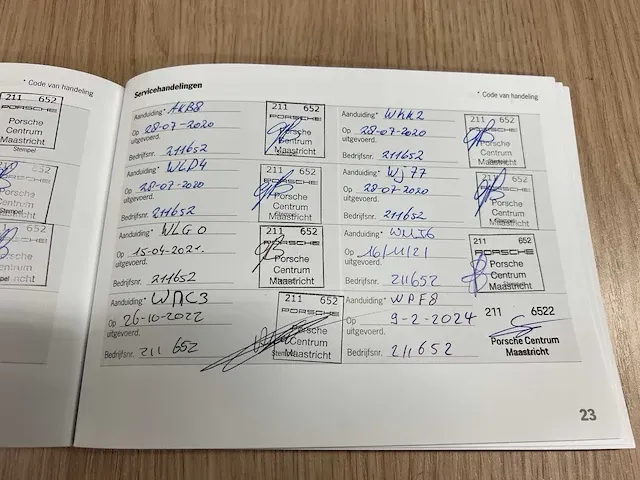 * Code van handeling
211 652
PORSCHE
Porsche
Centrum
Maastricht
Stempel
Servicehandelingen
* Code van handeling
Aanduiding* AKB8
Op 28-07-2020
uitgevoerd.
Bedrijfsnr. 211652
211 652
PORSCHE
Porsche
Centrum
Maastricht
Aanduiding* WKK2
Op 28-07-2020
uitgevoerd.
Bedrijfsnr. 211652
211 652
Porsche
Centrum
Maastricht
Aanduiding* WLD4
Op 28-07-2020
uitgevoerd.
Bedrijfsnr. 211652
211 652
PORSCHE
Porsche
Centrum
Maastricht
Aanduiding* WJ77
Op 28-07-2020
uitgevoerd.
Bedrijfsnr. 211652
211 652
Porsche
Centrum
Maastricht
Aanduiding* WLG0
Op 15-04-2021.
uitgevoerd.
Bedrijfsnr. 211652
211 652
PORSCHE
Porsche
Centrum
Maastricht
Aanduiding*
Op 16/11/21
uitgevoerd.
Bedrijfsnr. 211652
211 652
PORSCHE
Porsche
Centrum
Maastricht
Aanduiding*
Op 26-10-2022
uitgevoerd.
Bedrijfsnr. 211 652
211 652
PORSCHE
Porsche
Centrum
Maastricht
Aanduiding* WPF8
Op 9-2-2024
uitgevoerd.
Bedrijfsnr. 211652
211 6522
Porsche Centrum
Maastricht
23